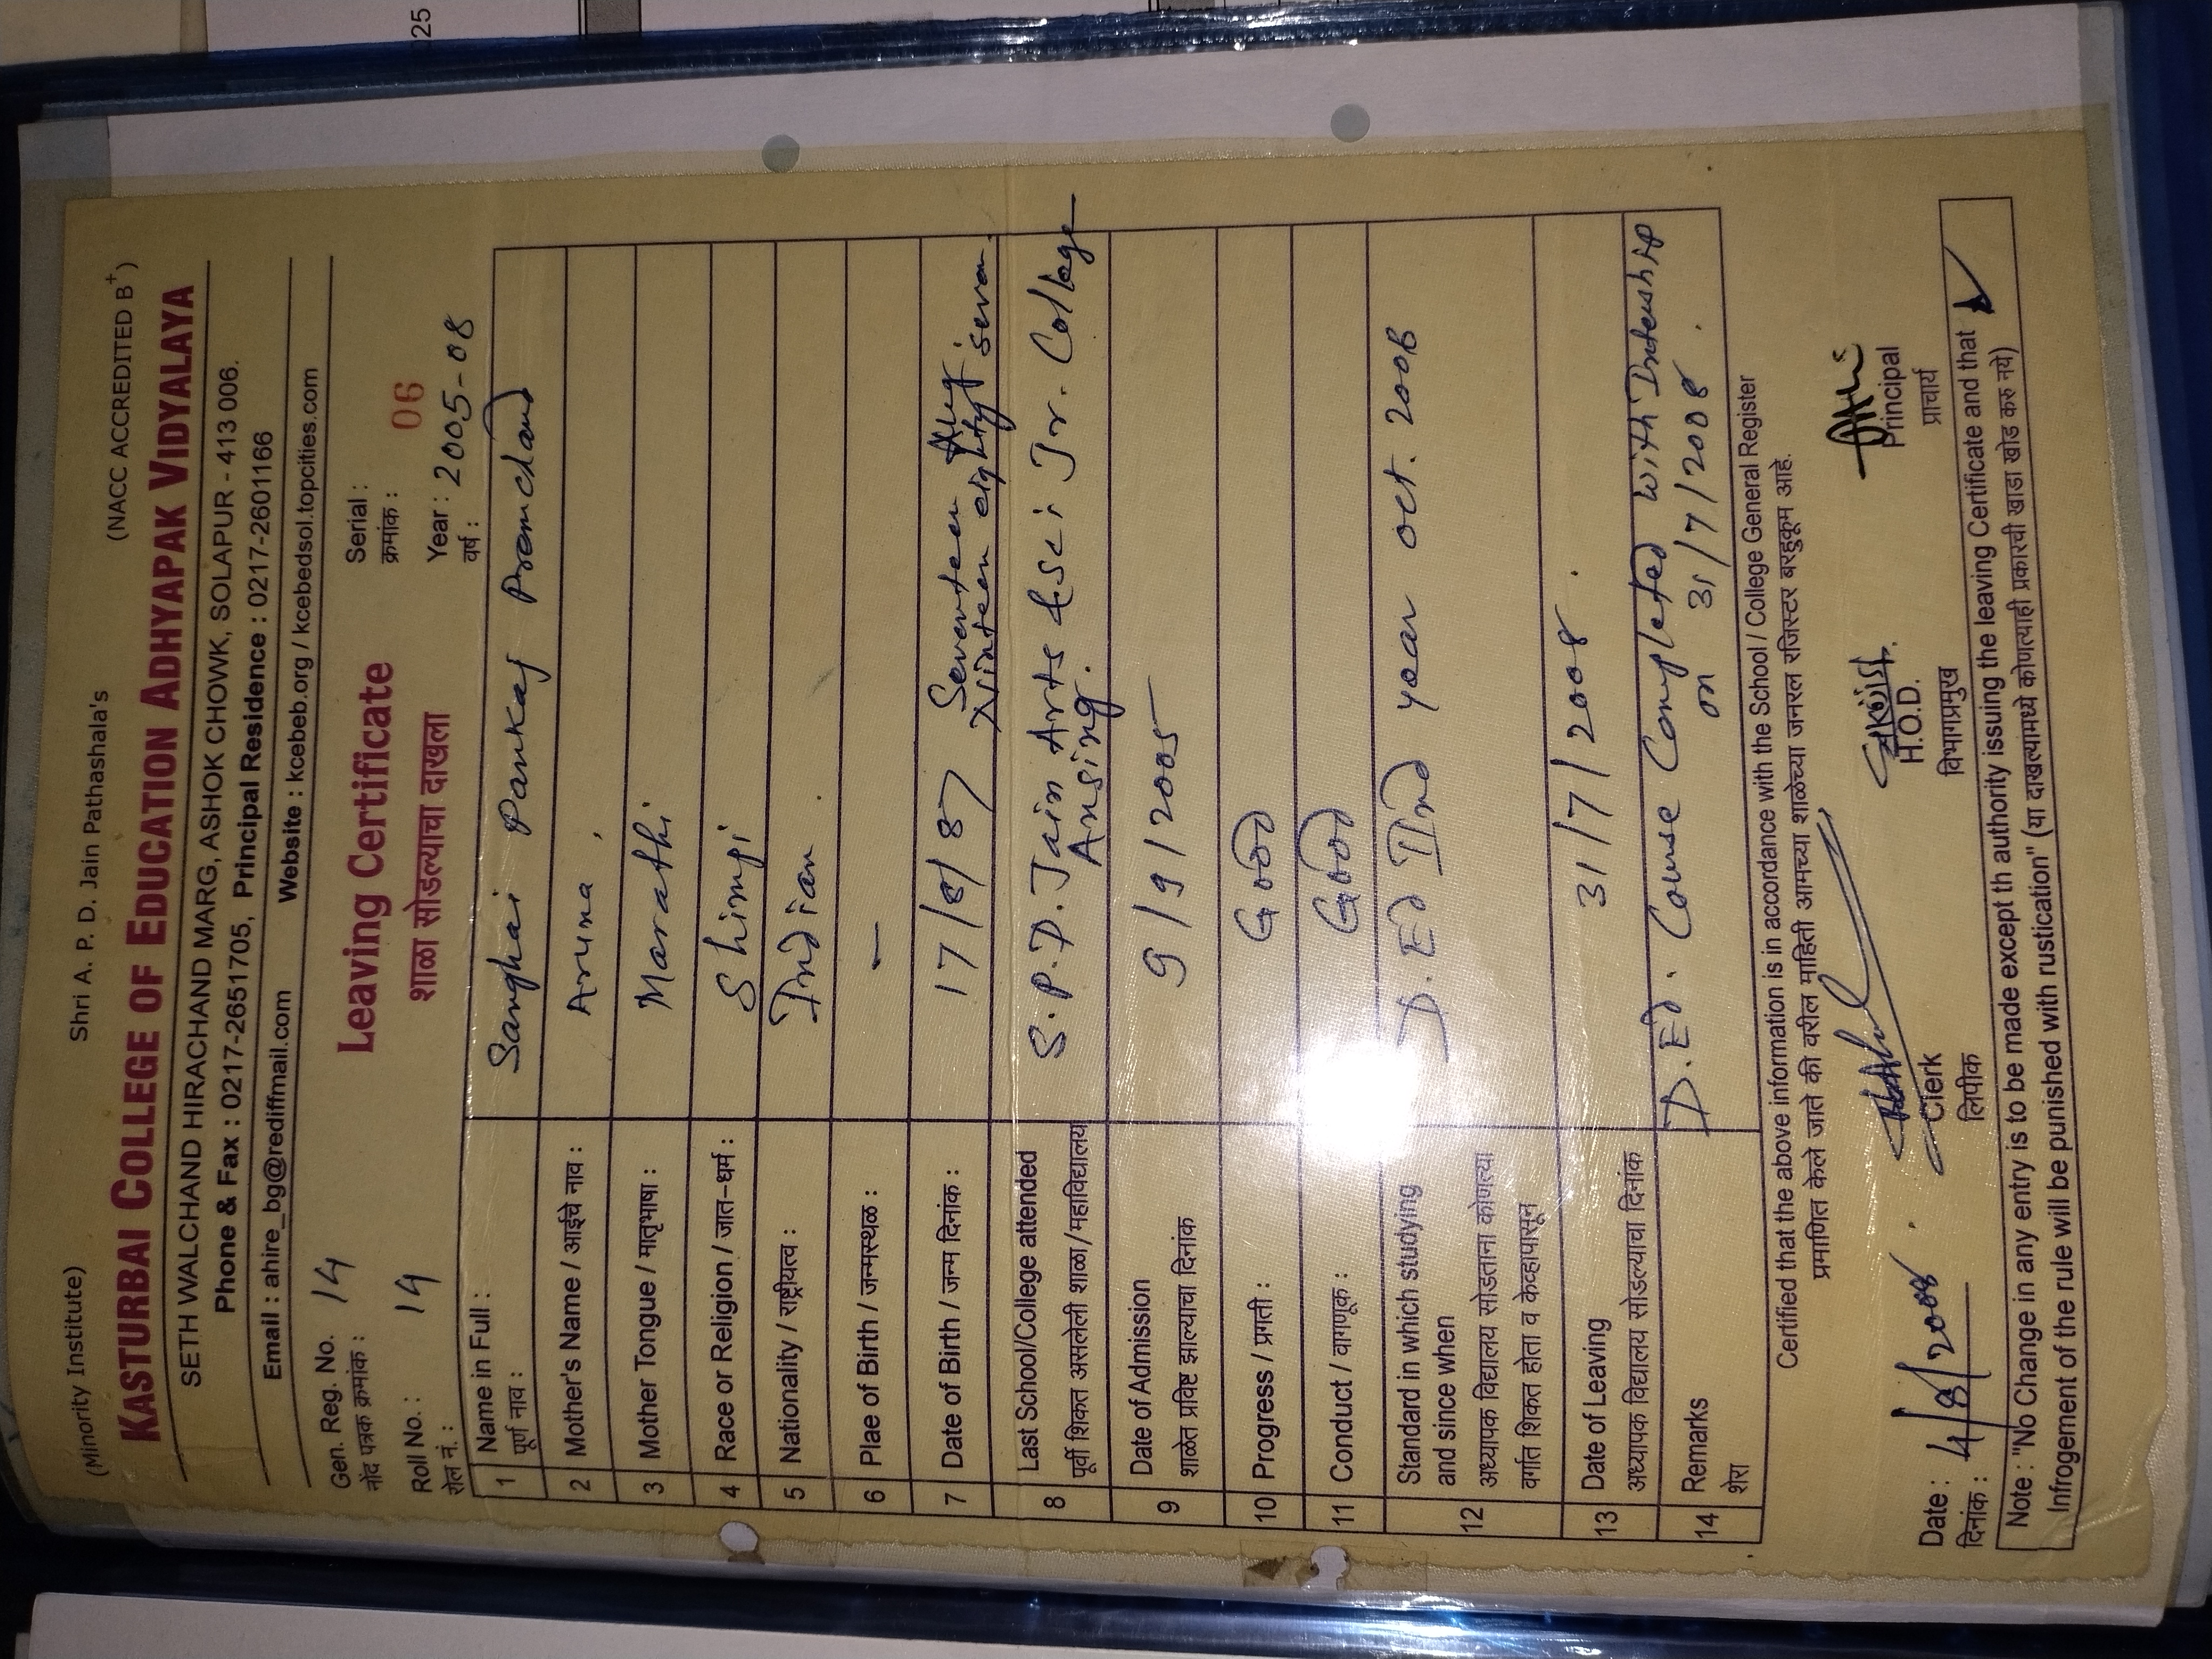 25
(Minority Institute) Shri A. P. D. Jain Pathashala's (NACC ACCREDITED B+)
KASTURBAI COLLEGE OF EDUCATION ADHYAPAK VIDYALAYA
SETH WALCHAND HIRACHAND MARG, ASHOK CHOWK, SOLAPUR - 413 006.
Phone & Fax : 0217-2651705, Principal Residence : 0217-2601166
Email : ahire_bg@rediffmail.com Website : kcebeb.org / kcebedsol.topcities.com
Gen. Reg. No. 14 Leaving Certificate Serial : 06
नोंद पत्रक क्रमांक : शाळा सोडल्याचा दाखला क्रमांक :
Roll No. : 14 Year : 2005-08
रोल नं. : वर्ष :
1 Name in Full : Sanghai Pankaj Premchand
पूर्ण नाव :
2 Mother's Name / आईचे नाव : Aruna
3 Mother Tongue / मातृभाषा : Marathi
4 Race or Religion / जात-धर्म : Shimpi
5 Nationality / राष्ट्रीयत्व : Indian
6 Plae of Birth / जन्मस्थळ : —
7 Date of Birth / जन्म दिनांक : 17/8/87 Seventeen Aug
Ninteen eighty seven
8 Last School/College attended S.P.D. Jain Arts & sci Jr. College
पूर्वी शिकत असलेली शाळा/महाविद्यालय Ansing.
9 Date of Admission 9/9/2005
शाळेत प्रविष्ट झाल्याचा दिनांक
10 Progress / प्रगती : Good
11 Conduct / वागणूक : Good
12 Standard in which studying D.Ed IInd year oct. 2006
and since when
अध्यापक विद्यालय सोडताना कोणत्या
वर्गात शिकत होता व केव्हापासून
13 Date of Leaving 31/7/2008.
अध्यापक विद्यालय सोडल्याचा दिनांक
14 Remarks D.Ed. Course Completed with Intership
शेरा on 31/7/2008.
Certified that the above information is in accordance with the School / College General Register
प्रमाणित केले जाते की वरील माहिती आमच्या शाळेच्या जनरल रजिस्टर बरहुकूम आहे.
Date : 4/8/2008. Clerk H.O.D. Principal
दिनांक : लिपीक विभागप्रमुख प्राचार्य
Note : "No Change in any entry is to be made except th authority issuing the leaving Certificate and that
Infrogement of the rule will be punished with rustication" (या दाखल्यामध्ये कोणत्याही प्रकारची खाडा खोड करु नये)